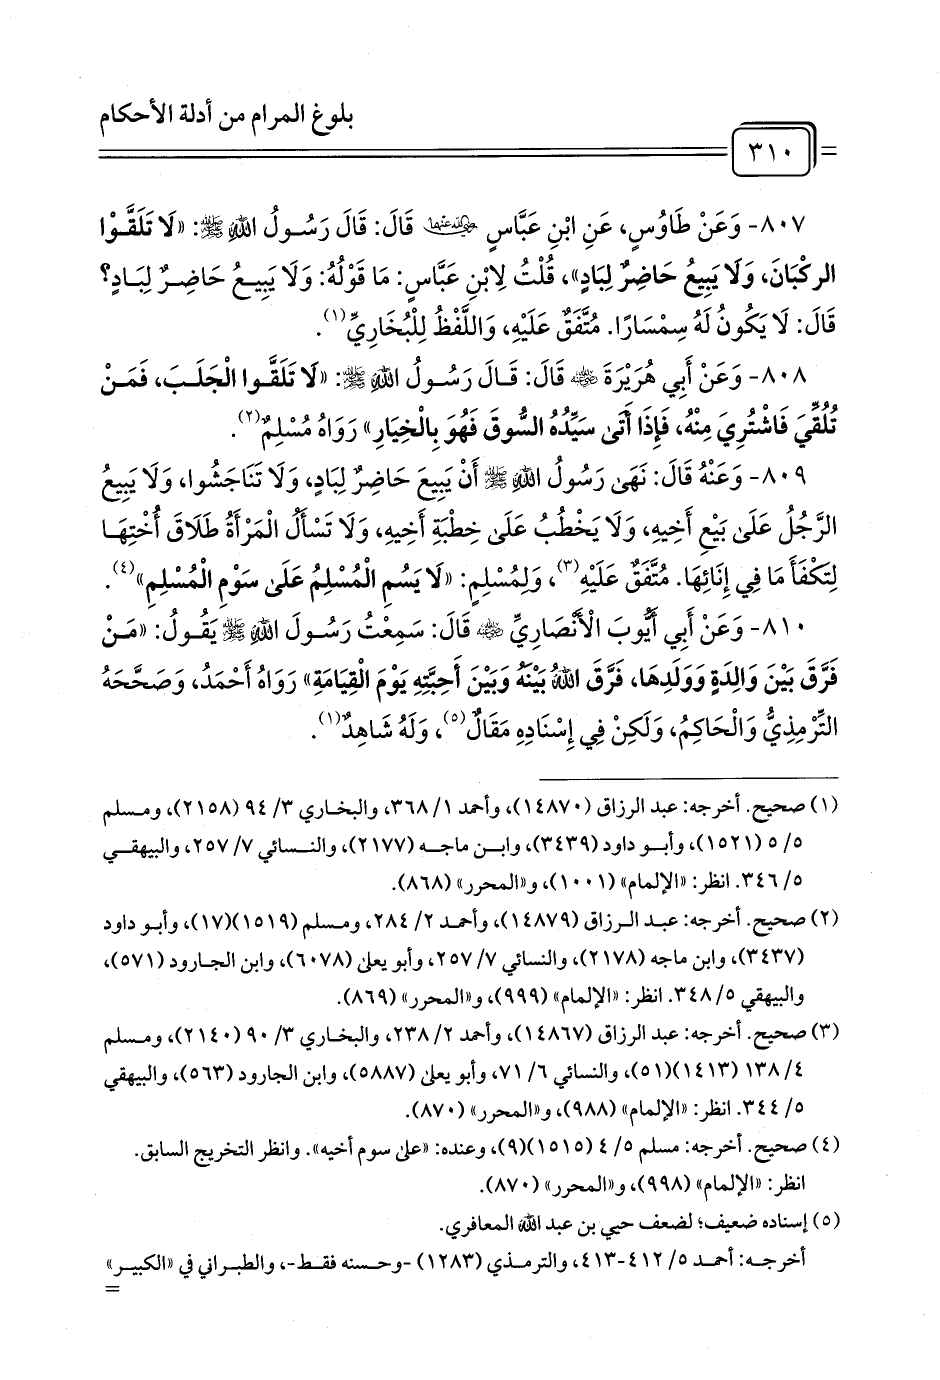 بلوغ المرام من أدلة الأحكام
٣١٠
٨٠٧- وَعَنْ طَاوُسٍ، عَنِ ابْنِ عَبَّاسٍ رضي الله عنهما قَالَ: قَالَ رَسُولُ اللهِ ﷺ: «لَا تَلَقَّوْا
الركْبَانَ، وَلَا يَبِيعُ حَاضِرٌ لِبَادٍ»، قُلْتُ لِابْنِ عَبَّاسٍ: مَا قَوْلُهُ: وَلَا يَبِيعُ حَاضِرٌ لِبَادٍ؟
قَالَ: لَا يَكُونُ لَهُ سِمْسَارًا. مُتَّفَقٌ عَلَيْهِ، وَاللَّفْظُ لِلْبُخَارِيِّ(١).
٨٠٨- وَعَنْ أَبِي هُرَيْرَةَ رضي الله عنه قَالَ: قَالَ رَسُولُ اللهِ ﷺ: «لَا تَلَقَّوا الْجَلَبَ، فَمَنْ
تُلُقِّيَ فَاشْتُرِيَ مِنْهُ، فَإِذَا أَتَى سَيِّدُهُ السُّوقَ فَهُوَ بِالْخِيَارِ» رَوَاهُ مُسْلِمٌ(٢).
٨٠٩- وَعَنْهُ قَالَ: نَهَى رَسُولُ اللهِ ﷺ أَنْ يَبِيعَ حَاضِرٌ لِبَادٍ، وَلَا تَنَاجَشُوا، وَلَا يَبِيعُ
الرَّجُلُ عَلَى بَيْعِ أَخِيهِ، وَلَا يَخْطُبُ عَلَى خِطْبَةِ أَخِيهِ، وَلَا تَسْأَلُ الْمَرْأَةُ طَلَاقَ أُخْتِهَا
لِتَكْفَأَ مَا فِي إِنَائِهَا. مُتَّفَقٌ عَلَيْهِ(٣)، وَلِمُسْلِمٍ: «لَا يَسُمِ الْمُسْلِمُ عَلَى سَوْمِ الْمُسْلِمِ»(٤).
٨١٠- وَعَنْ أَبِي أَيُّوبَ الْأَنْصَارِيِّ رضي الله عنه قَالَ: سَمِعْتُ رَسُولَ اللهِ ﷺ يَقُولُ: «مَنْ
فَرَّقَ بَيْنَ وَالِدَةٍ وَوَلَدِهَا، فَرَّقَ اللهُ بَيْنَهُ وَبَيْنَ أَحِبَّتِهِ يَوْمَ الْقِيَامَةِ» رَوَاهُ أَحْمَدُ، وَصَحَّحَهُ
التِّرْمِذِيُّ وَالْحَاكِمُ، وَلَكِنْ فِي إِسْنَادِهِ مَقَالٌ(٥)، وَلَهُ شَاهِدٌ(١).
(١) صحيح. أخرجه: عبد الرزاق (١٤٨٧٠)، وأحمد ١/ ٣٦٨، والبخاري ٣/ ٩٤ (٢١٥٨)، ومسلم
٥/ ٥ (١٥٢١)، وأبو داود (٣٤٣٩)، وابن ماجه (٢١٧٧)، والنسائي ٧/ ٢٥٧، والبيهقي
٥/ ٣٤٦. انظر: «الإلمام» (١٠٠١)، و«المحرر» (٨٦٨).
(٢) صحيح. أخرجه: عبد الرزاق (١٤٨٧٩)، وأحمد ٢/ ٢٨٤، ومسلم (١٥١٩)(١٧)، وأبو داود
(٣٤٣٧)، وابن ماجه (٢١٧٨)، والنسائي ٧/ ٢٥٧، وأبو يعلى (٦٠٧٨)، وابن الجارود (٥٧١)،
والبيهقي ٥/ ٣٤٨. انظر: «الإلمام» (٩٩٩)، و«المحرر» (٨٦٩).
(٣) صحيح. أخرجه: عبد الرزاق (١٤٨٦٧)، وأحمد ٢/ ٢٣٨، والبخاري ٣/ ٩٠ (٢١٤٠)، ومسلم
٤/ ١٣٨ (١٤١٣)(٥١)، والنسائي ٦/ ٧١، وأبو يعلى (٥٨٨٧)، وابن الجارود (٥٦٣)، والبيهقي
٥/ ٣٤٤. انظر: «الإلمام» (٩٨٨)، و«المحرر» (٨٧٠).
(٤) صحيح. أخرجه: مسلم ٥/ ٤ (١٥١٥)(٩)، وعنده: «على سوم أخيه». وانظر التخريج السابق.
انظر: «الإلمام» (٩٩٨)، و«المحرر» (٨٧٠).
(٥) إسناده ضعيف؛ لضعف حيي بن عبد الله المعافري.
أخرجه: أحمد ٥/ ٤١٢-٤١٣، والترمذي (١٢٨٣) -وحسنه فقط-، والطبراني في «الكبير»
=